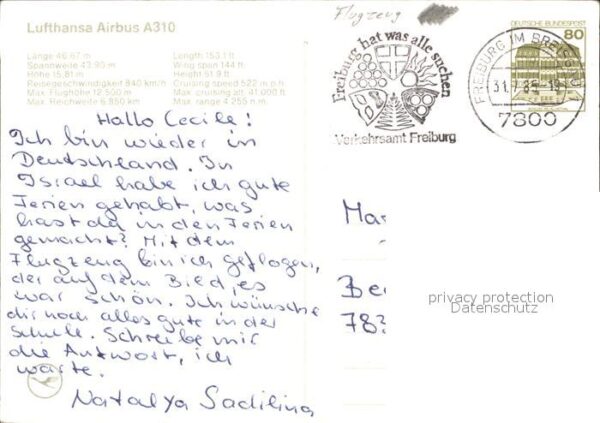 Lufthansa Airbus A310
Länge 46.67 m
Spannweite 43.90 m
Höhe 15.81 m
Reisegeschwindigkeit 840 km/h
Max. Flughöhe 12.500 m
Max. Reichweite 6.850 km
Length 153.1 ft
Wing span 144 ft
Height 51.9 ft
Cruising speed 522 m.p.h.
Max. cruising alt. 41.000 ft
Max. range 4.255 n.m.
Flugzeug
Freiburg hat was alle suchen
Verkehrsamt Freiburg
DEUTSCHE BUNDESPOST
80
FREIBURG IM BREISGAU
31.7.85-18
7800
Hallo Cecile!
Ich bin wieder in
Deutschland. In
Israel habe ich gute
Ferien gehabt, was
hast du in den Ferien
gemacht? Mit dem
Flugzeug bin ich geflogen,
der auf dem Bied, es
war schön. Ich wünsche
dir noch alles gute in der
Schule. Schreibe mir
die Antwort, ich
warte.
Natalya Sadilina
Ma
Be
78
privacy protection
Datenschutz